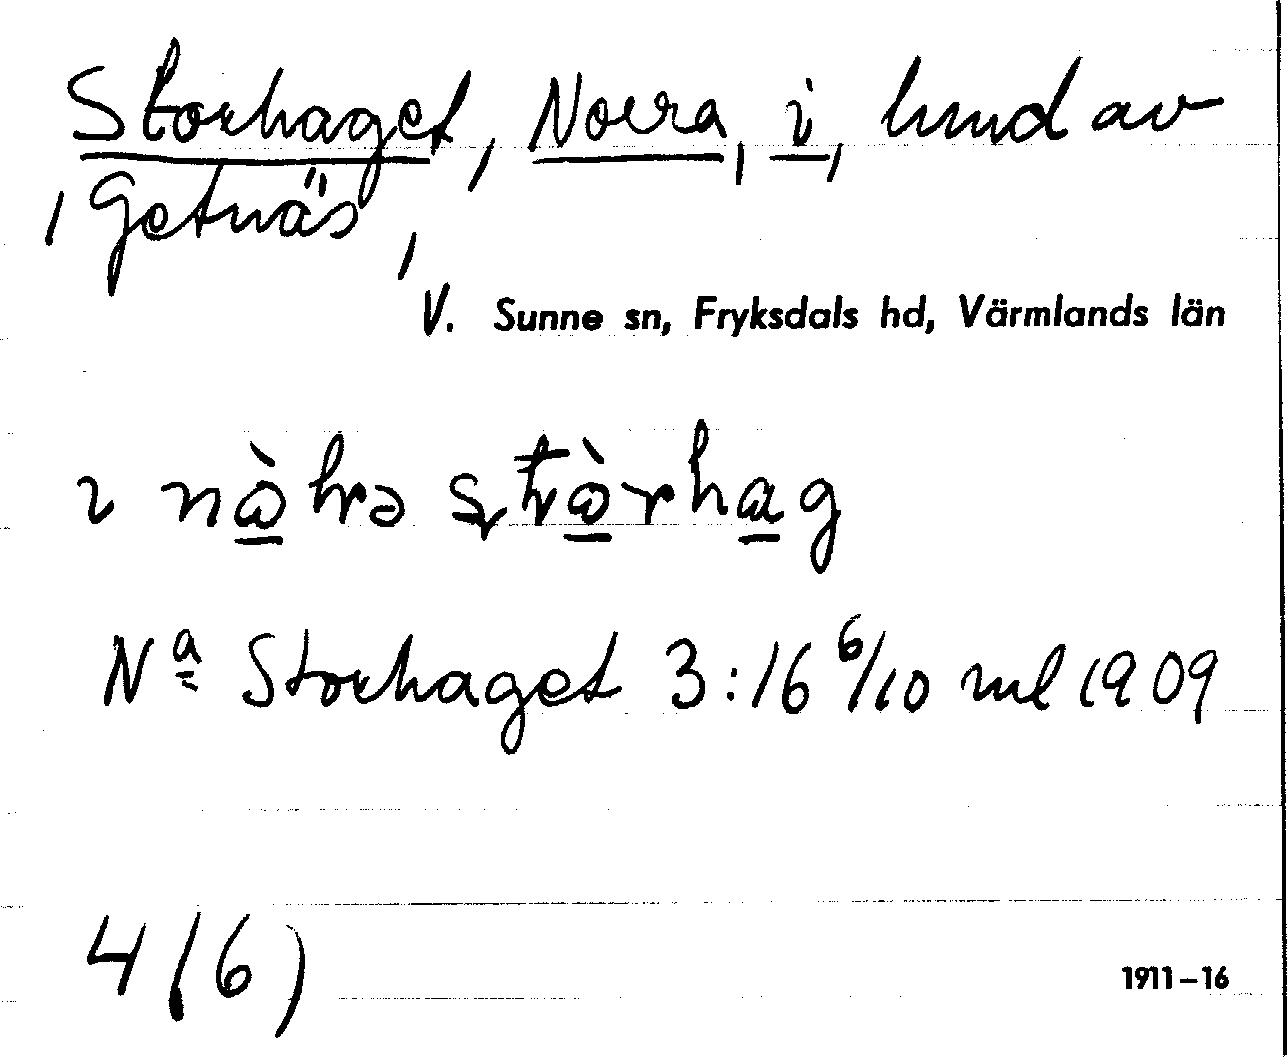 Storhaget, Norra, i, hmd av
, Getnäs,
V. Sunne sn, Fryksdals hd, Värmlands län
Nª Storhaget 3:16 6/10 ml 1909
4(6)
1911–16